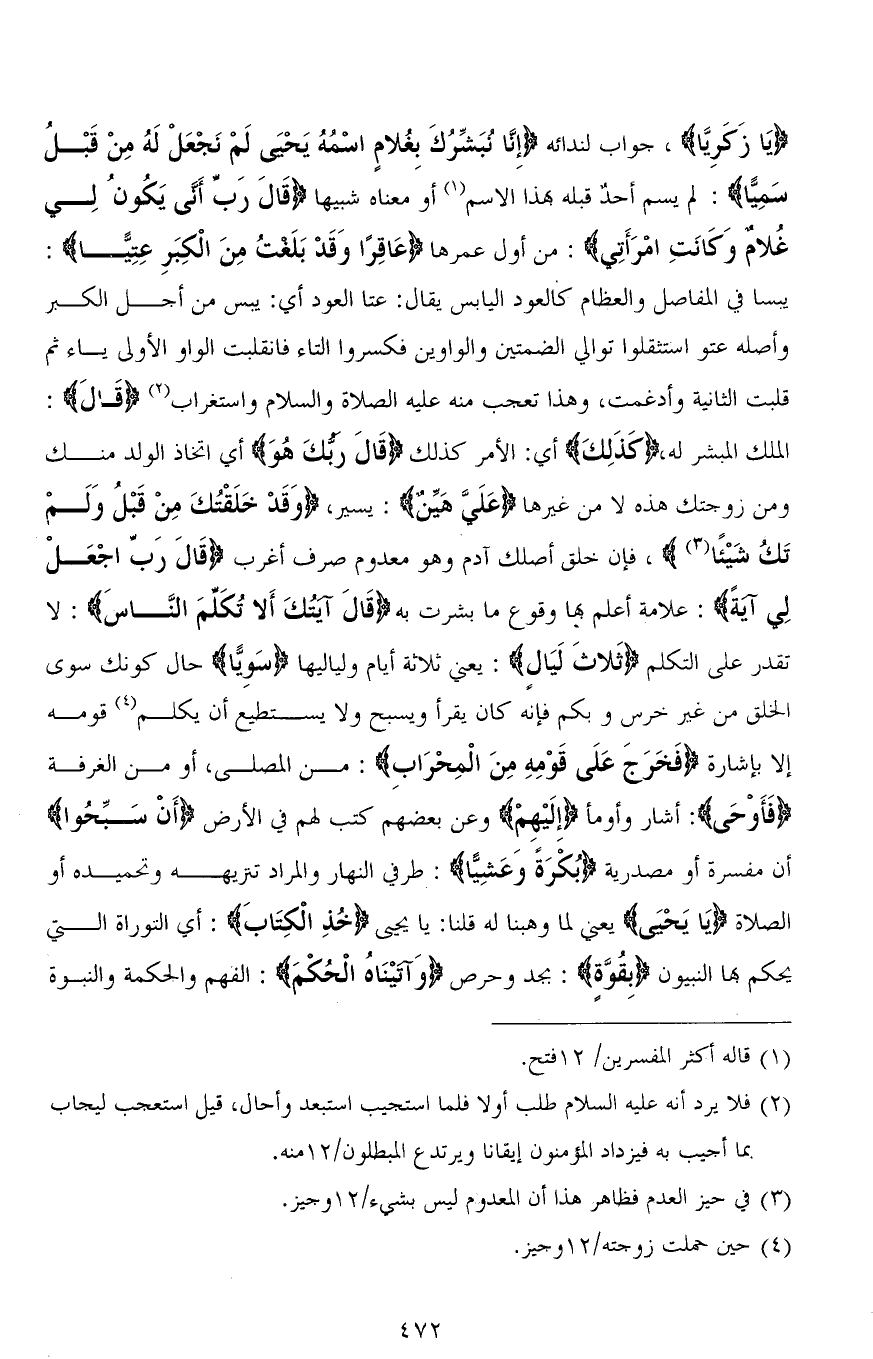 ﴿يَا زَكَرِيَّا﴾ ، جواب لندائه ﴿إِنَّا نُبَشِّرُكَ بِغُلامٍ اسْمُهُ يَحْيَى لَمْ نَجْعَلْ لَهُ مِنْ قَبْلُ
سَمِيًّا﴾ : لم يسم أحدٌ قبله بهذا الاسم(١) أو معناه شبيها ﴿قَالَ رَبِّ أَنَّى يَكُونُ لِي
غُلامٌ وَكَانَتِ امْرَأَتِي﴾ : من أول عمرها ﴿عَاقِرًا وَقَدْ بَلَغْتُ مِنَ الْكِبَرِ عِتِيًّا﴾ :
يبسا في المفاصل والعظام كالعود اليابس يقال: عتا العود أي: يبس من أجل الكبر
وأصله عتو استثقلوا توالي الضمتين والواوين فكسروا التاء فانقلبت الواو الأولى ياء ثم
قلبت الثانية وأدغمت، وهذا تعجب منه عليه الصلاة والسلام واستغراب(٢) ﴿قَالَ﴾ :
الملك المبشر له،﴿كَذَلِكَ﴾ أي: الأمر كذلك ﴿قَالَ رَبُّكَ هُوَ﴾ أي اتخاذ الولد منك
ومن زوجتك هذه لا من غيرها ﴿عَلَيَّ هَيِّنٌ﴾ : يسير، ﴿وَقَدْ خَلَقْتُكَ مِنْ قَبْلُ وَلَمْ
تَكُ شَيْئًا(٣) ﴾ ، فإن خلق أصلك آدم وهو معدوم صرف أغرب ﴿قَالَ رَبِّ اجْعَلْ
لِي آيَةً﴾ : علامة أعلم بها وقوع ما بشرت به ﴿قَالَ آيَتُكَ أَلا تُكَلِّمَ النَّاسَ﴾ : لا
تقدر على التكلم ﴿ثَلاثَ لَيَالٍ﴾ : يعني ثلاثة أيام ولياليها ﴿سَوِيًّا﴾ حال كونك سوى
الخلق من غير خرس و بكم فإنه كان يقرأ ويسبح ولا يستطيع أن يكلم(٤) قومه
إلا بإشارة ﴿فَخَرَجَ عَلَى قَوْمِهِ مِنَ الْمِحْرَابِ﴾ : من المصلى، أو من الغرفة
﴿فَأَوْحَى﴾: أشار وأومأ ﴿إِلَيْهِمْ﴾ وعن بعضهم كتب لهم في الأرض ﴿أَنْ سَبِّحُوا﴾
أن مفسرة أو مصدرية ﴿بُكْرَةً وَعَشِيًّا﴾ : طرفي النهار والمراد تنزيهه وتحميده أو
الصلاة ﴿يَا يَحْيَى﴾ يعني لما وهبنا له قلنا: يا يحيى ﴿خُذِ الْكِتَابَ﴾ : أي التوراة التي
يحكم بها النبيون ﴿بِقُوَّةٍ﴾ : بجد وحرص ﴿وَآتَيْنَاهُ الْحُكْمَ﴾ : الفهم والحكمة والنبوة
(١) قاله أكثر المفسرين/ ١٢فتح.
(٢) فلا يرد أنه عليه السلام طلب أولا فلما استجيب استبعد وأحال، قيل استعجب ليجاب
بما أجيب به فيزداد المؤمنون إيقانا ويرتدع المبطلون/١٢منه.
(٣) في حيز العدم فظاهر هذا أن المعدوم ليس بشيء/١٢وجيز.
(٤) حين حملت زوجته/١٢وجيز.
٤٧٢